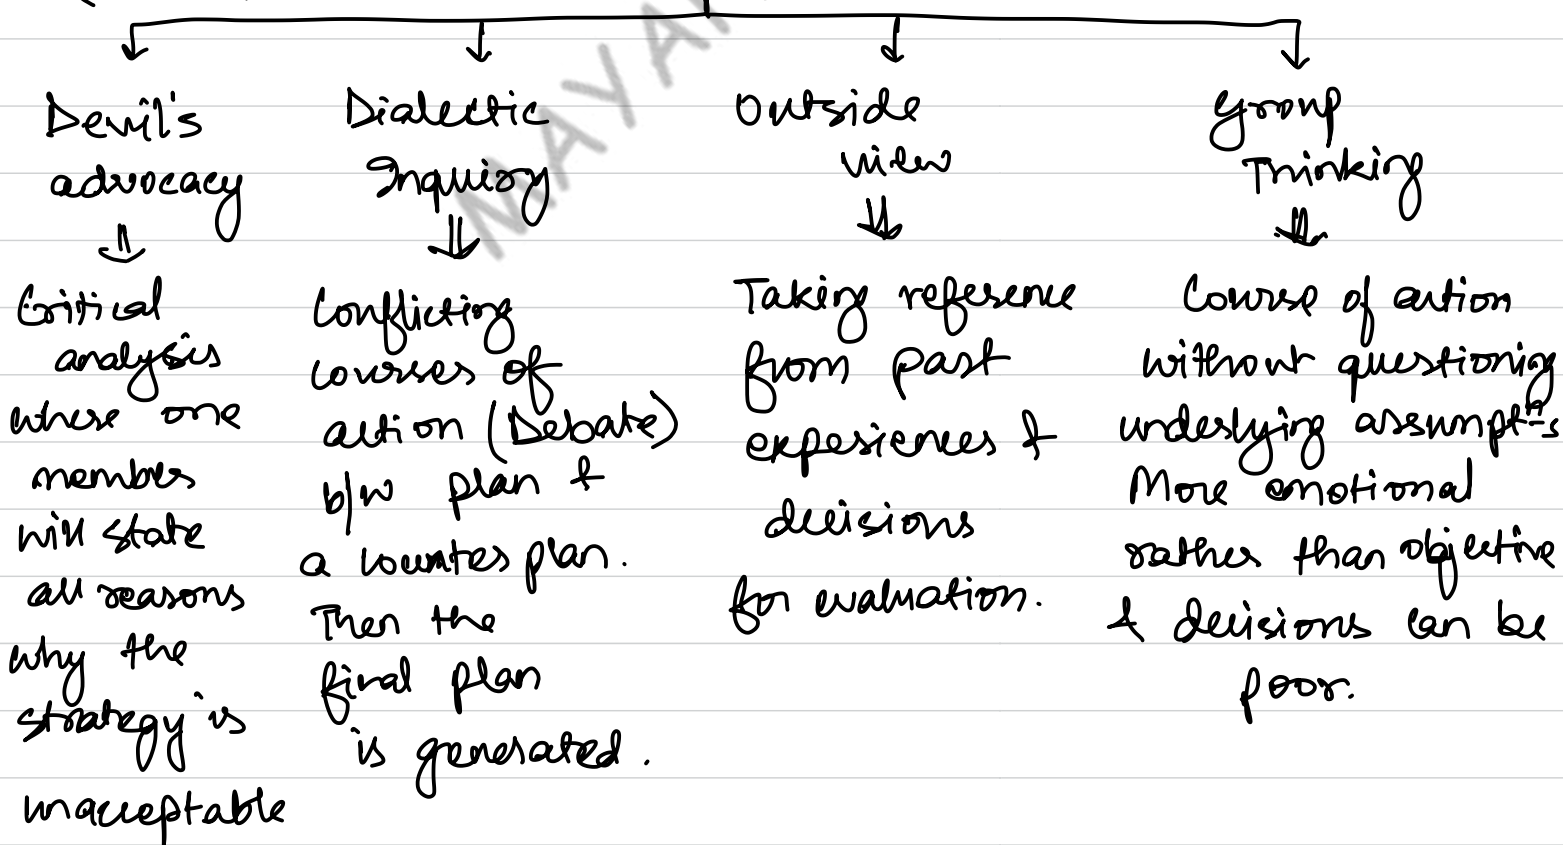 Devil's
advocacy
Critical
analysis
where one
member
will state
all reasons
why the
strategy is
unacceptable
Dialectic
Inquiry
Conflicting
courses of
action (Debate)
b/w plan &
a counter plan.
Then the
final plan
is generated.
Outside
view
Taking reference
from past
experiences &
decisions
for evaluation.
Group
Thinking
Course of action
without questioning
underlying assumptns
More emotional
rather than objective
& decisions can be
poor.